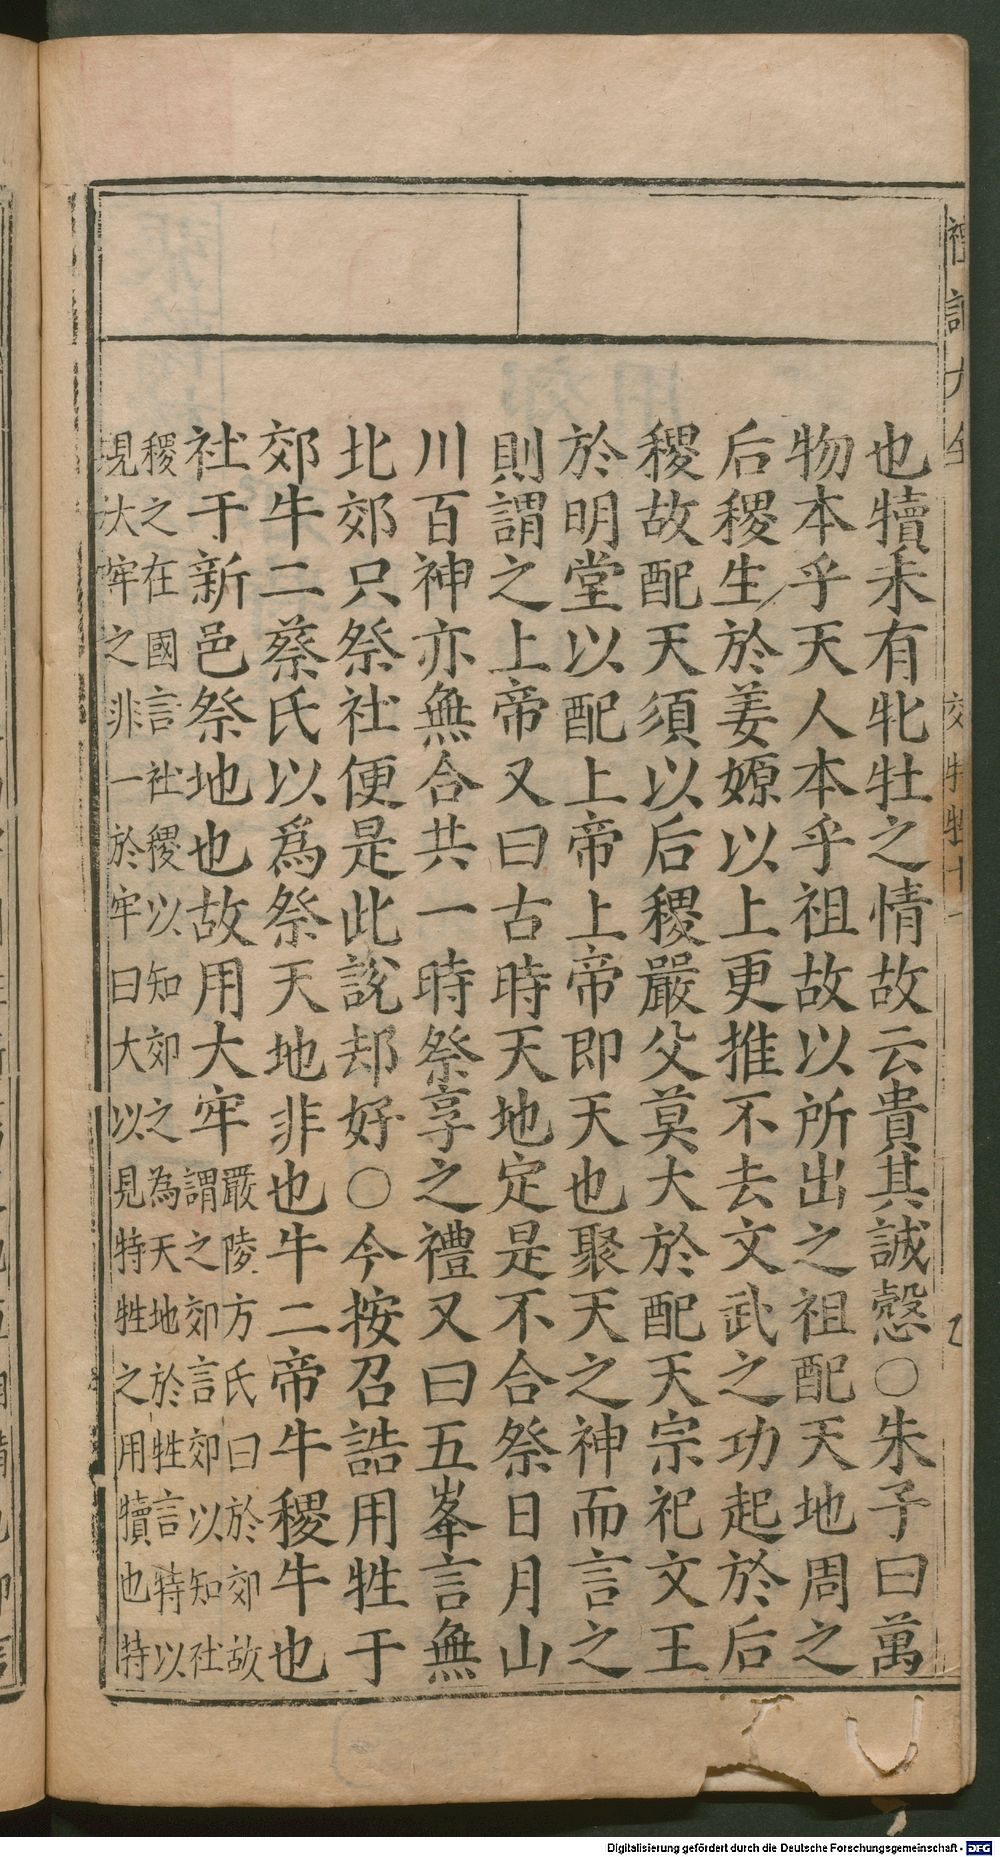 也犢未有牝牡之情故云貴其誠愨○朱子曰萬
物本乎天人本乎祖故以所出之祖配天地周之
后稷生於姜嫄以上更推不去文武之功起於后
稷故配天須以后稷嚴父莫大於配天宗祀文王
於明堂以配上帝上帝即天也聚天之神而言之
則謂之上帝又曰古時天地定是不合祭日月山
川百神亦無合共一時祭享之禮又曰五峯言無
北郊只祭社便是此說却好○今按召誥用牲于
郊牛二蔡氏以爲祭天地非也牛二帝牛稷牛也
社于新邑祭地也故用大牢
嚴陵方氏曰於郊故
謂之郊言郊以知社
稷之在國言社稷以知郊之為天地於牲言特以
現大牢之非一於牢曰大以見特牲之用犢也特
Digitalisierung gefördert durch die Deutsche Forschungsgemeinschaft - DFG